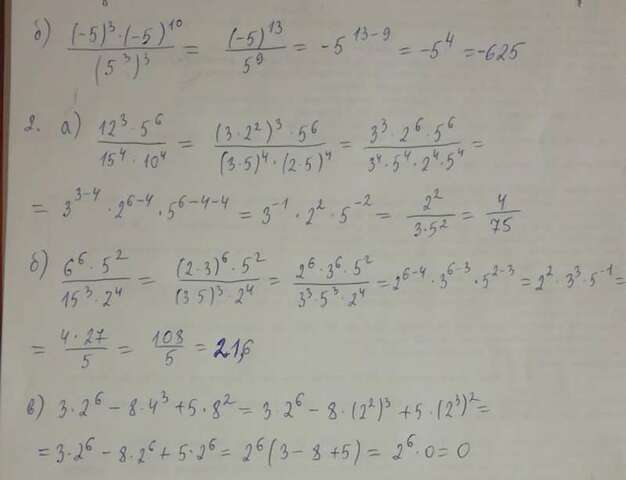 б) (-5)³·(-5)¹⁰ / (5³)³ = (-5)¹³ / 5⁹ = -5¹³⁻⁹ = -5⁴ = -625
2. а) 12³·5⁶ / 15⁴·10⁴ = (3·2²)³·5⁶ / (3·5)⁴·(2·5)⁴ = 3³·2⁶·5⁶ / 3⁴·5⁴·2⁴·5⁴ =
= 3³⁻⁴·2⁶⁻⁴·5⁶⁻⁴⁻⁴ = 3⁻¹·2²·5⁻² = 2² / 3·5² = 4 / 75
б) 6⁶·5² / 15³·2⁴ = (2·3)⁶·5² / (3·5)³·2⁴ = 2⁶·3⁶·5² / 3³·5³·2⁴ = 2⁶⁻⁴·3⁶⁻³·5²⁻³ = 2²·3³·5⁻¹ =
= 4·27 / 5 = 108 / 5 = 21,6
в) 3·2⁶ - 8·4³ + 5·8² = 3·2⁶ - 8·(2²)³ + 5·(2³)² =
= 3·2⁶ - 8·2⁶ + 5·2⁶ = 2⁶(3 - 8 + 5) = 2⁶·0 = 0